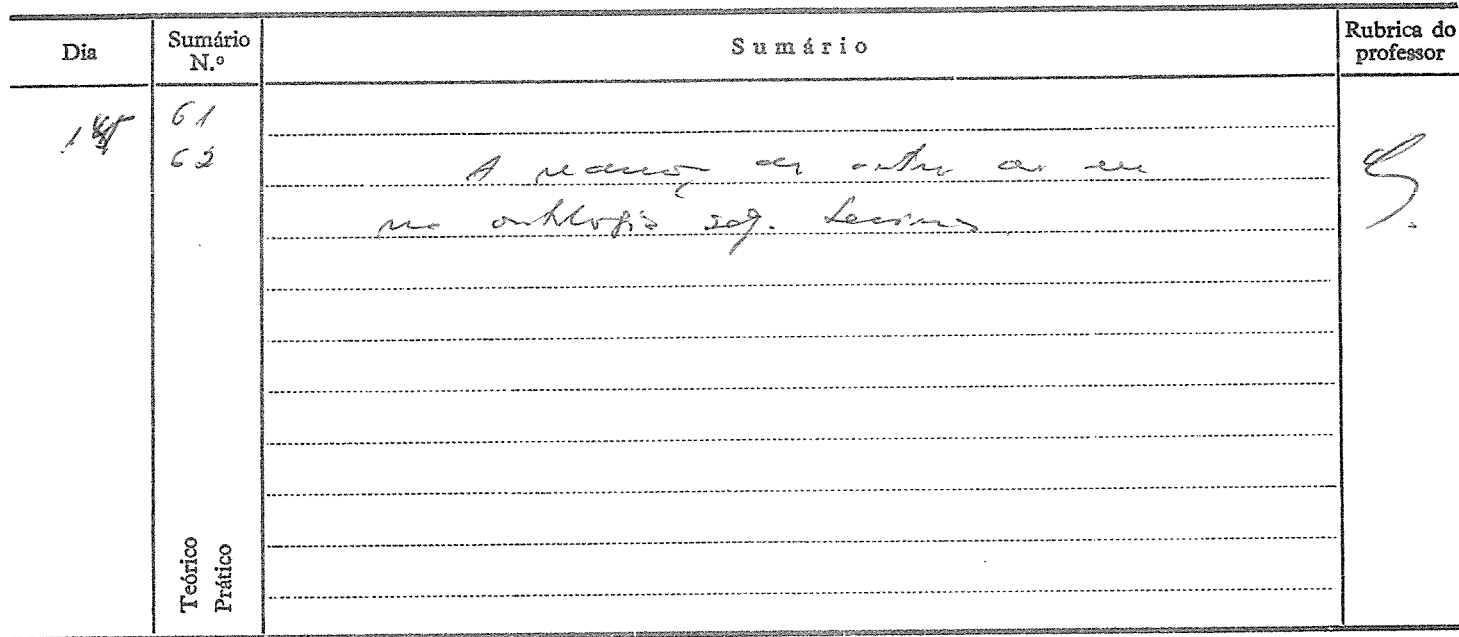 Dia
Sumário N.º
Sumário
Rubrica do professor
61
62
A redução do outro ao eu
na ontologia seg. Levinas
Teórico
Prático